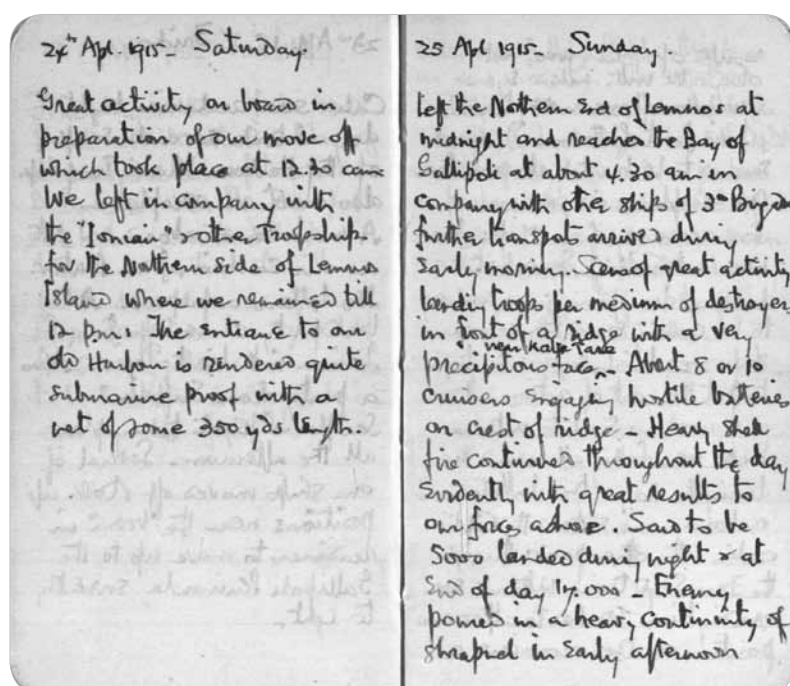 24th Apl. 1915 - Saturday.
Great activity on board in
preparation of our move off
which took place at 12.30 a.m.
We left in company with
the "Ionian" & other Troopships
for the Northern Side of Lemnos
Island where we remained till
12 p.m. The Entrance to our
old Harbour is rendered quite
Submarine proof with a
net of some 350 yds length.
25 Apl 1915 - Sunday.
Left the Northern End of Lemnos at
midnight and reached the Bay of
Gallipoli at about 4.30 am in
Company with other ships of 3rd Brigade
further transports arrived during
Early morning. Scene of great activity
landing troops per medium of destroyers
in front of a ridge with a very
" near Kaba Tepe
precipitous face - About 8 or 10
Cruisers Engaging hostile batteries
on crest of ridge - Heavy shell
fire continued throughout the day
Evidently with great results to
our force ashore. Said to be
5000 landed during night & at
End of day 17.000 - Enemy
poured in a heavy continuity of
shrapnel in Early afternoon